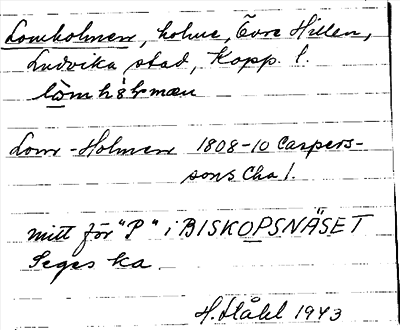 Lomholmen, holme, Övre Hillen,
Ludvika stad, Kopp. l.
Lom-Holmen 1808-10 Caspers-
sons Cha l.
mitt för "P" i BISKOPSNÄSET
Seges ka.
H. Ståhl 1943